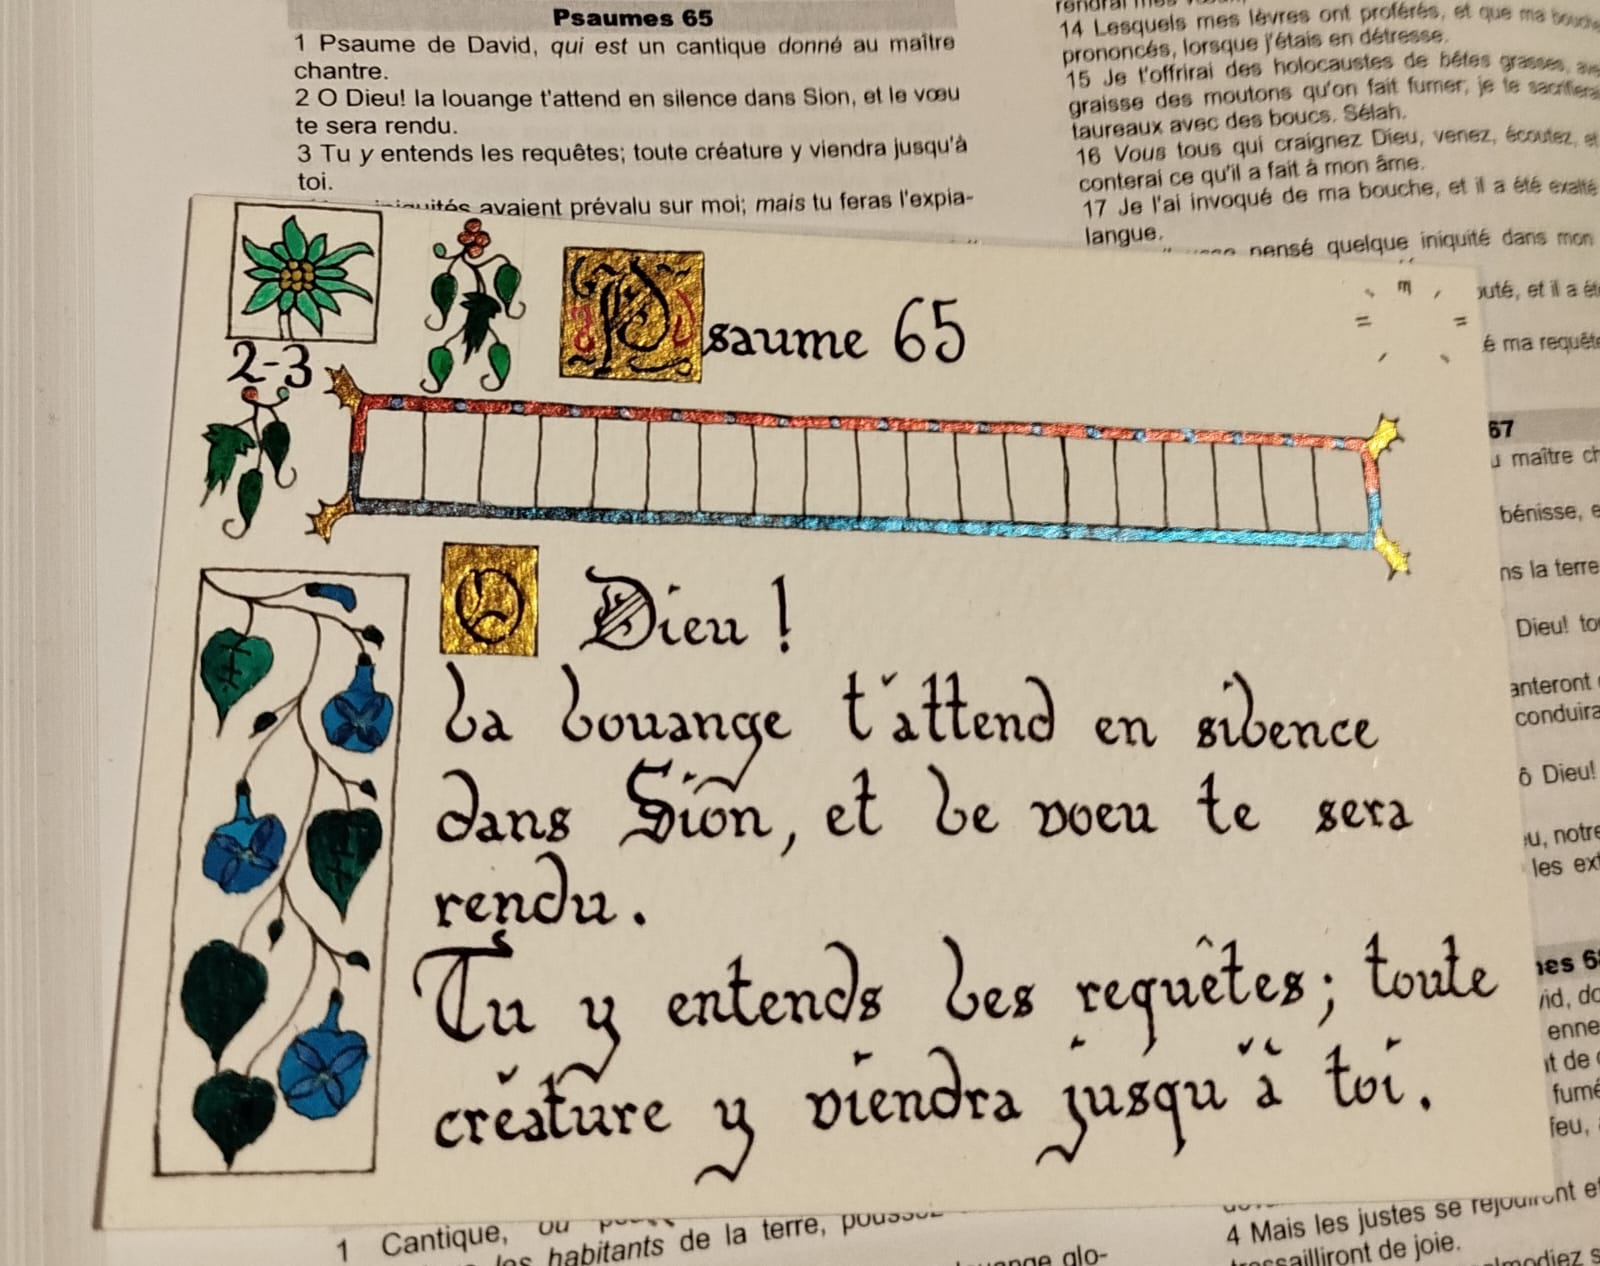 Psaumes 65
1 Psaume de David, qui est un cantique donné au maître
chantre.
2 O Dieu! la louange t'attend en silence dans Sion, et le vœu
te sera rendu.
3 Tu y entends les requêtes; toute créature y viendra jusqu'à
toi.
avaient prévalu sur moi; mais tu feras l'expia-
14 Lesquels mes lèvres ont proférés, et que ma
prononcés, lorsque j'étais en détresse.
15 Je t'offrirai des holocaustes de bêtes grasses,
graisse des moutons qu'on fait fumer; je te
taureaux avec des boucs. Sélah.
16 Vous tous qui craignez Dieu, venez, écoutez, et
conterai ce qu'il a fait à mon âme.
17 Je l'ai invoqué de ma bouche, et il a été exalté
langue.
pensé quelque iniquité dans mon
et il a
ma
67
maître
bénisse,
la terre
Dieu!
ô Dieu!
les
de
Psaume 65
2-3
O Dieu !
La louange t'attend en silence
dans Sion, et le voeu te sera
rendu.
Tu y entends les requêtes; toute
créature y viendra jusqu'à toi.
1 Cantique, ou
habitants de la terre,
glo-
4 Mais les justes se réjouiront et
de joie.